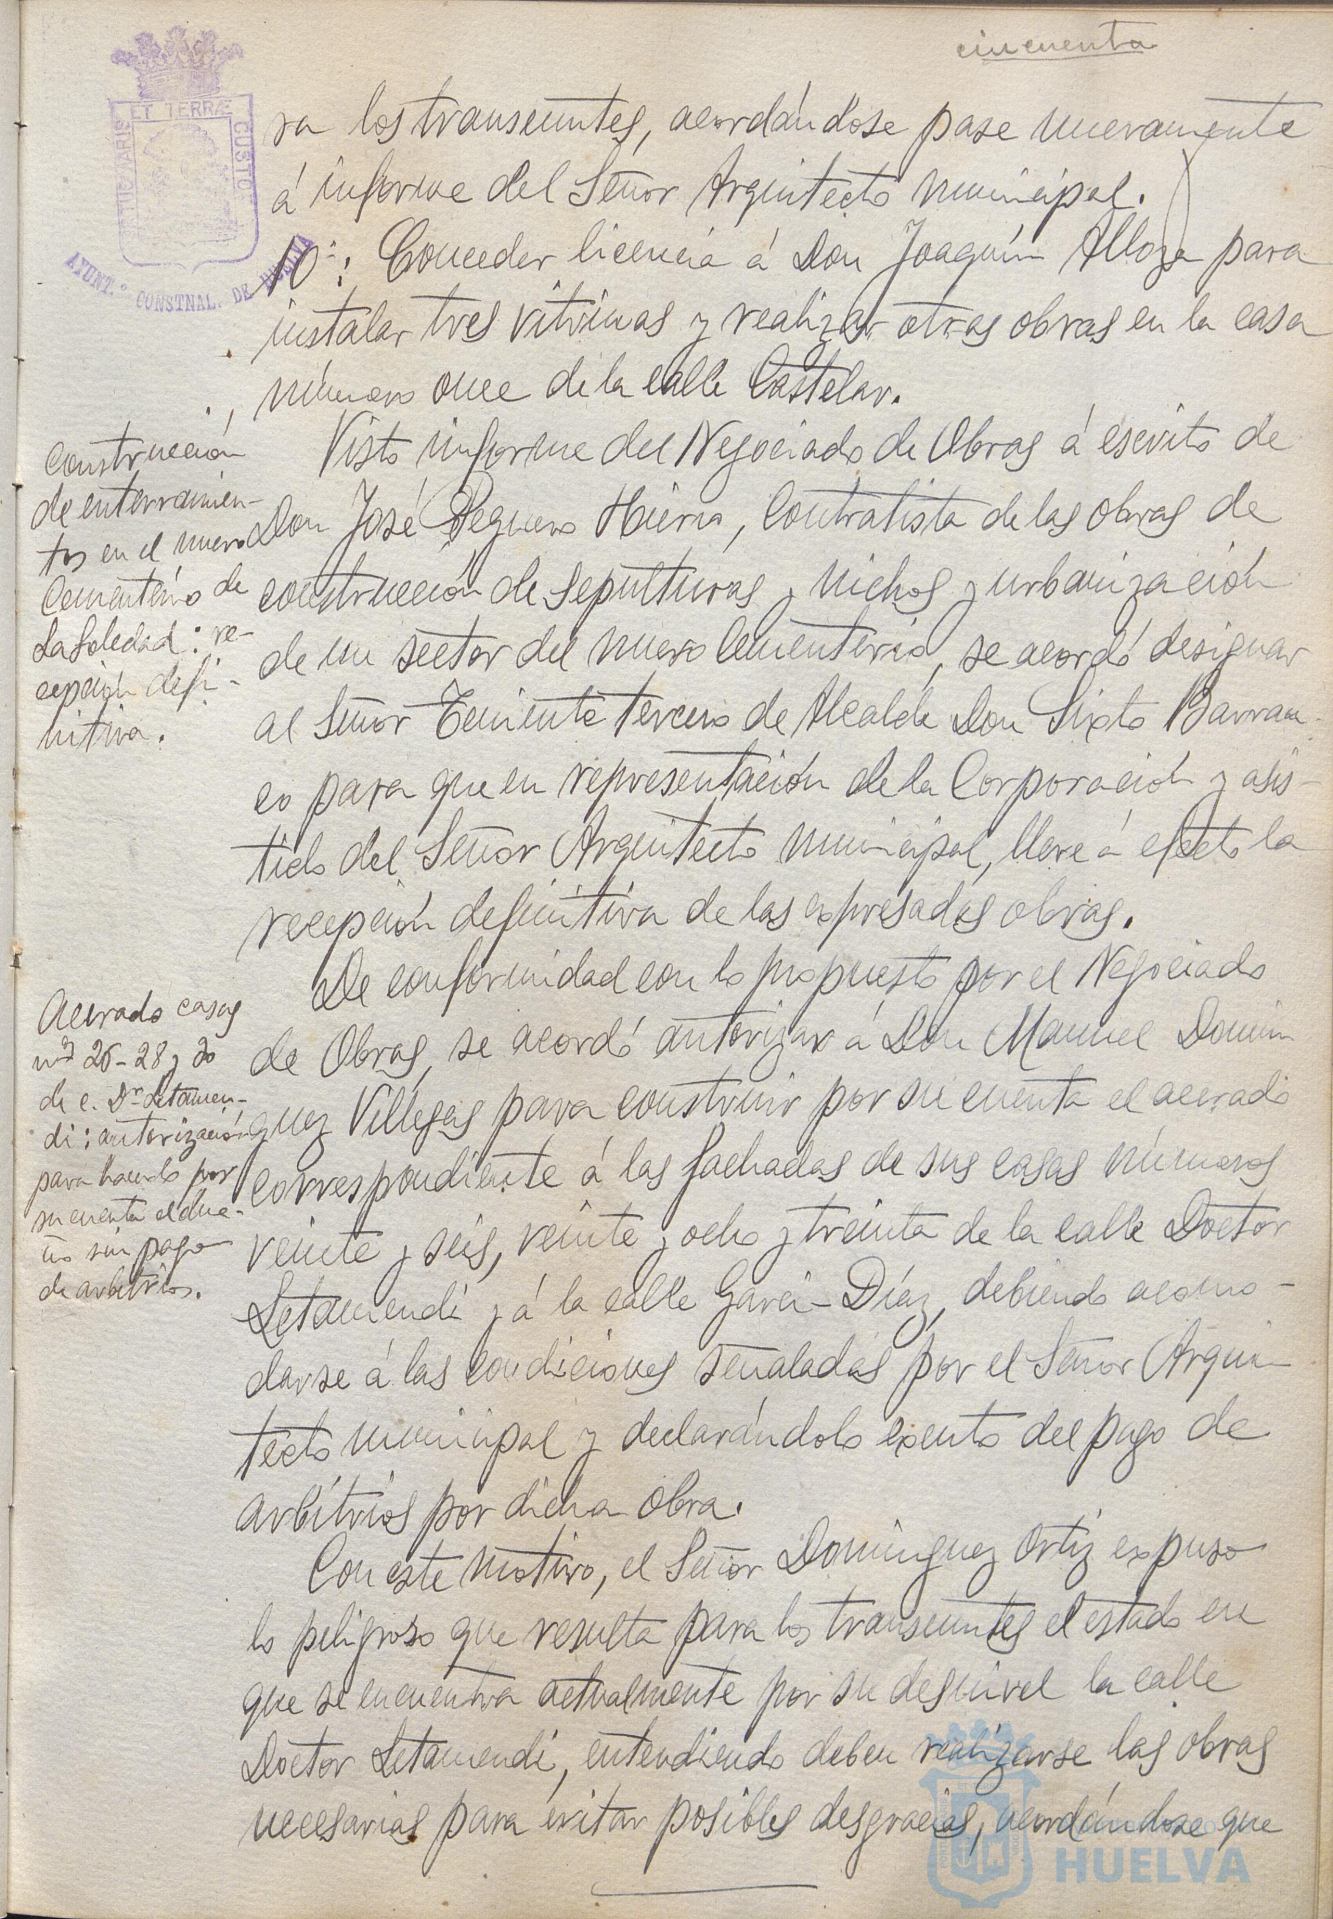 cincuenta
PORTUS MARIS ET TERRÆ CUSTO
AYUNT.º CONSTNAL. DE HUELVA
ra los transeuntes, acordándose pase nuevamente
á informe del Señor Arquitecto municipal.
10º: Conceder licencia á Don Joaquín Alloza para
instalar tres vitrinas y realizar otras obras en la casa
número once de la calle Castelar.
Construcción
de enterramien-
tos en el nuevo
Cementerio de
La Soledad: re-
cepción defi-
nitiva.
Visto informe del Negociado de Obras á escrito de
Don José Peguero Hierra, Contratista de las obras de
construcción de sepulturas y nichos y urbanización
de un sector del nuevo Cementerio, se acordó designar
al Señor Teniente tercero de Alcalde Don Sixto Barran-
co para que en representación de la Corporación y asis-
tido del Señor Arquitecto municipal, lleve á efecto la
recepción definitiva de las expresadas obras.
Acerado casas
nos 26-28 y 30
de c. Dr. Letamen-
di: autorización
para hacerlo por
su cuenta el due-
ño sin pago
de arbitrios.
De conformidad con lo propuesto por el Negociado
de Obras, se acordó autorizar á Don Manuel Domin
guez Villegas para construir por su cuenta el acerado
correspondiente á las fachadas de sus casas números
veinte y seis, veinte y ocho y treinta de la calle Doctor
Letamendi y á la calle Garci-Díaz, debiendo acomo-
darse á las condiciones señaladas por el Señor Arqui-
tecto municipal y declarándolo exento del pago de
arbitrios por dicha obra.
Con este motivo, el Señor Dominguez Ortiz expuso
lo peligroso que resulta para los transeuntes el estado en
que se encuentra actualmente por su desnivel la calle
Doctor Letamendi, entendiendo deben realizarse las obras
necesarias para evitar posibles desgracias, acordándose que
HUELVA